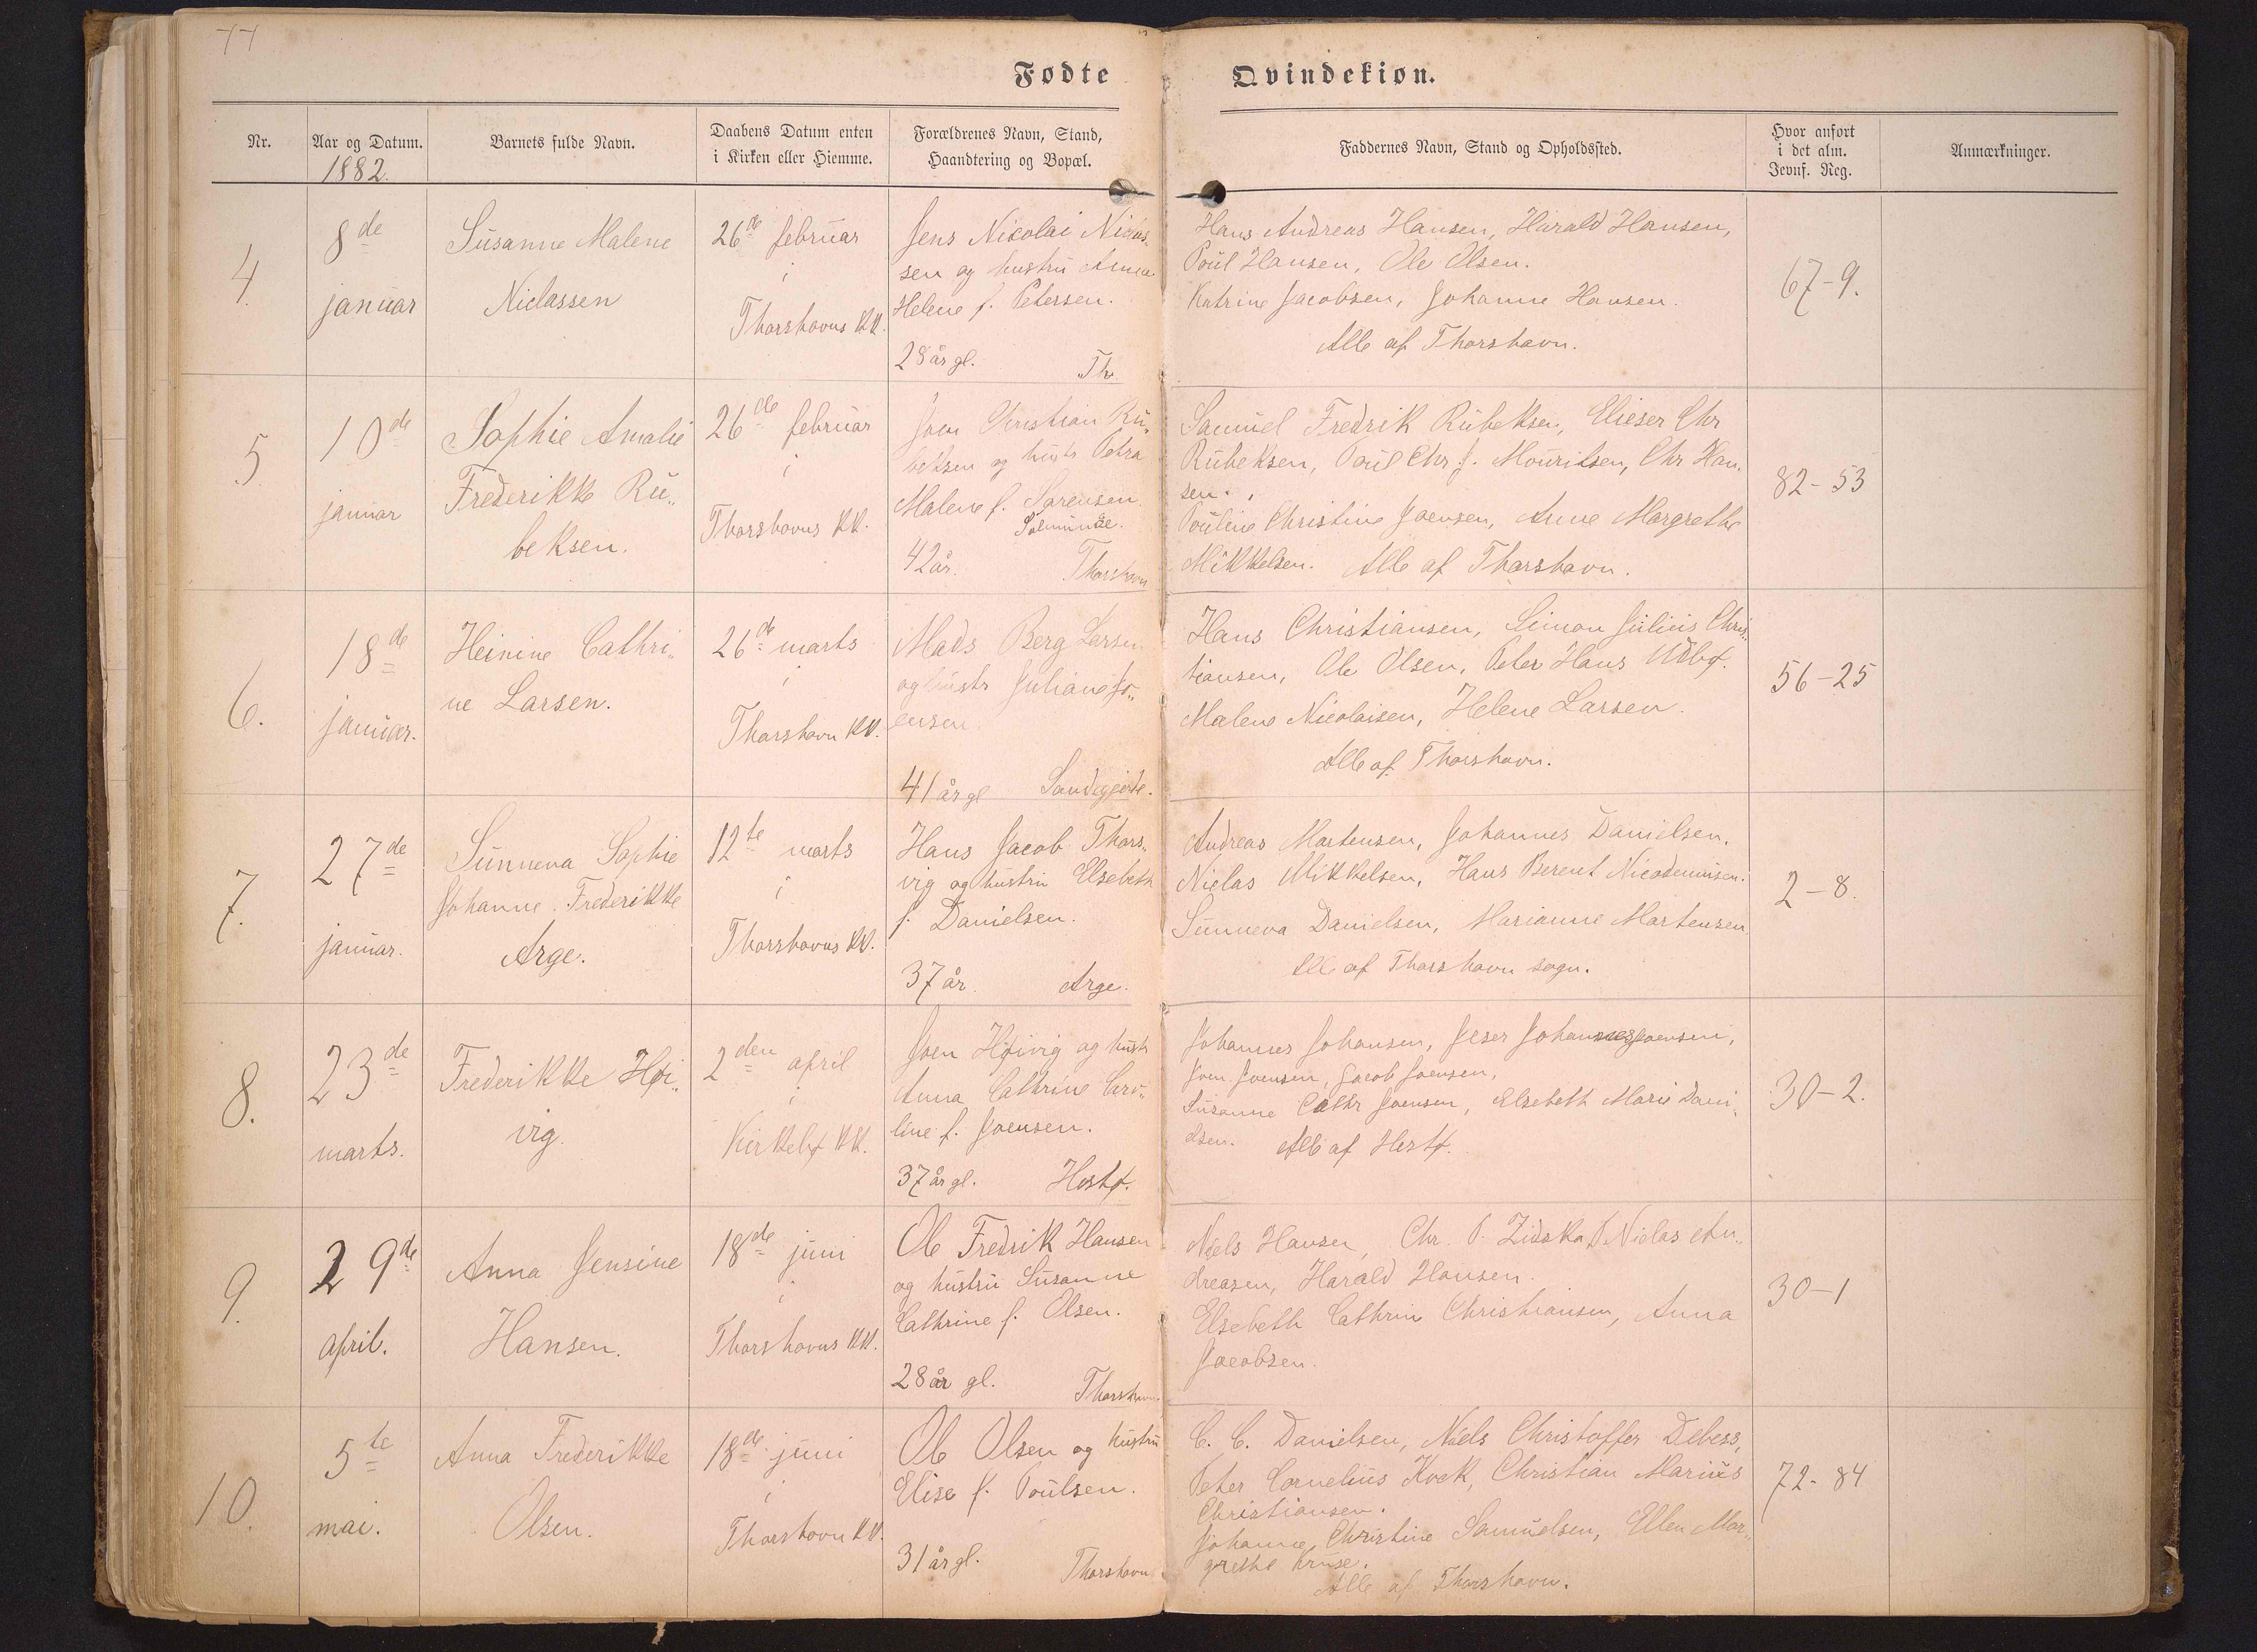 77
Fødte Qvindekiøn.
Nr.
Aar og Datum.
1882.
Barnets fulde Navn.
Daabens Datum enten
i Kirken eller Hiemme.
Forældrenes Navn, Stand,
Haandtering og Bopæl.
Faddernes Navn, Stand og Opholdssted.
Hvor anført
i det alm.
Jevnf. Reg.
Anmærkninger.
4.
8de
januar
Susanne Malene
Niclassen
26de februar
i
Thorshavns KK.
Jens Nicolai Niclas-
sen og hustru Anna
Helene f. Petersen.
28 år gl. Th
Hans Andreas Hansen, Harald Hansen,
Poul Hansen, Ole Olsen.
Katrine Jacobsen, Johanne Hansen.
Alle af Thorshavn.
67-9.
5.
10de
januar
Sophie Amalie
Frederikke Ru-
beksen.
26de februar
i
Thorshavns KK.
Joen Christian Ru-
beksen og hustr Petra
Malene f. Sørensen
42 år. Thorshavn
Samuel Fredrik Rubeksen, Elieser Chr
Rubeksen, Poul Chr. J. Mouritsen, Chr Han-
sen.
Pouline Christine Joensen, Anne Margrethe
Mikkelsen. Alle af Thorshavn.
82-53
6.
18de
januar.
Heinine Cathri-
ne Larsen.
26de marts
i
Thorshavn KK.
Mads Berg Larsen
og hustr Juliane Jo-
ensen
41 år gl Sandegjerde.
Hans Christiansen, Simon Julius Chris-
tiansen, Ole Olsen, Peter Hans
Malene Nicolaisen, Helene Larsen.
Alle af Thorshavn.
56-25
7.
27de
januar.
Sunneva Sophie
Johanne Frederikke
Arge.
12te marts
i
Thorshavns KK.
Hans Jacob Thors-
vig og hustru Elsebeth
f. Danielsen.
37 år. Arge.
Andreas Martensen, Johannes Danielsen,
Niclas Mikkelsen, Hans Berent Nicodemusen.
Sunneva Danielsen, Marianne Martensen
Alle af Thorshavn sogn.
2-8.
8.
23de
marts.
Frederikke Høi-
vig.
2den april
i
Kirkebø KK.
Joen Høivig og hustr
Anna Cathrine Caro-
line f. Joensen.
37 år gl. Hestø.
Johannes Johansen, Jeser Johannes Joensen,
Joen Joensen, Jacob Joensen,
Susanne Cathr Joensen, Elsebeth Marie Dani-
elsen. Alle af Hestø.
30-2.
9.
29de
april.
Anna Jensine
Hansen.
18de juni
i
Thorshavns KK.
Ole Fredrik Hansen
og hustru Susanne
Cathrine f. Olsen.
28 år gl. Thorshavn.
Niels Hansen, Chr. P. Zidska, Niclas An-
dreasen, Harald Hansen.
Elsebeth Cathrine Christiansen, Anna
Jacobsen.
30-1
10.
5te
mai.
Anna Frederikke
Olsen.
18de juni
i
Thorshavn KK.
Ole Olsen og hustru
Elise f. Poulsen.
31 år gl. Thorshavn
C. C. Danielsen, Niels Christoffer Debess,
Peter Cornelius Kock, Christian Marius
Christiansen.
Johanne Christine Samuelsen, Ellen Mar-
grethe Kruse.
Alle af Thorshavn.
72-84